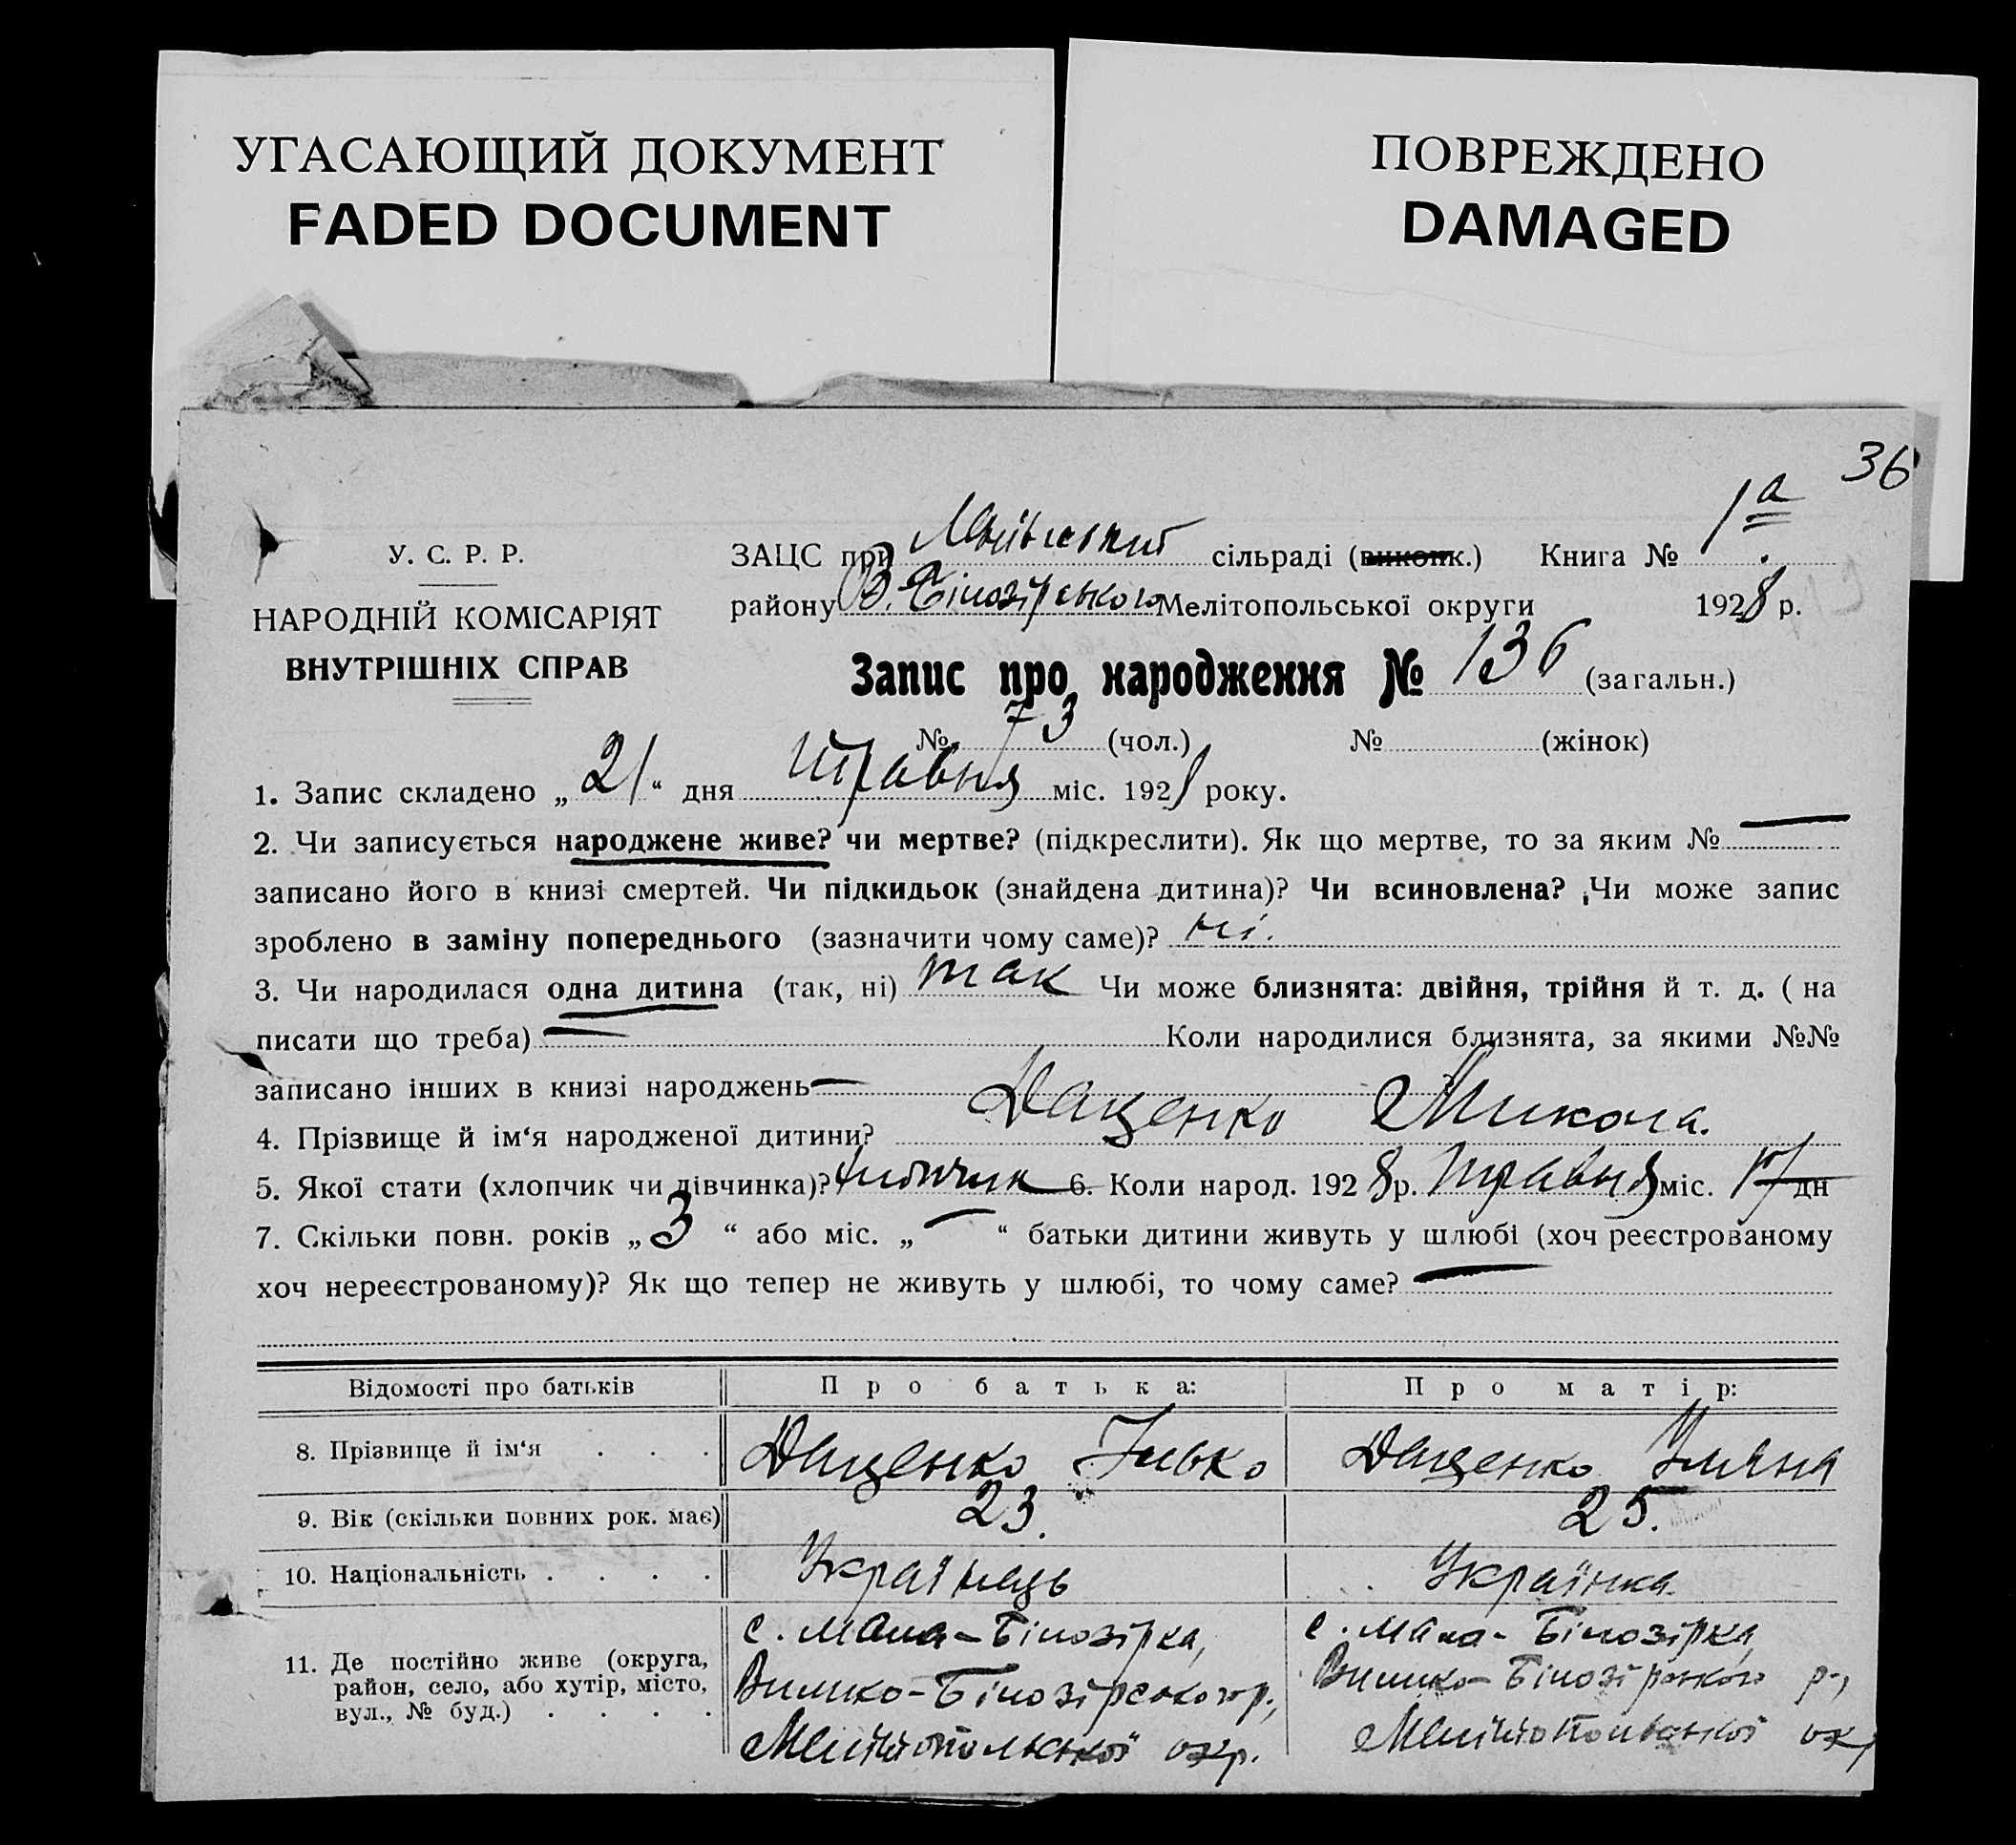 УГАСАЮЩИЙ ДОКУМЕНТ
FADED DOCUMENT
ПОВРЕЖДЕНО
DAMAGED
36
У. С. Р. Р.
НАРОДНІЙ КОМІСАРІЯТ
ВНУТРІШНІХ СПРАВ
ЗАЦС при сільраді (виконк.) Книга № 1а
району В. Білозірського Мелітопольської округи 1928 р.
Запис про народження № 136 (загальн.)
№ 73 (чол.) № (жінок)
1. Запис складено „ 21 “ дня Травня міс. 1928 року.
2. Чи записується народжене живе? чи мертве? (підкреслити). Як що мертве, то за яким № —
записано його в книзі смертей. Чи підкидьок (знайдена дитина)? Чи всиновлена? Чи може запис
зроблено в заміну попереднього (зазначити чому саме)? ні.
3. Чи народилася одна дитина (так, ні) так Чи може близнята: двійня, трійня й т. д. ( на
писати що треба) — Коли народилися близнята, за якими №№
записано інших в книзі народжень —
4. Прізвище й ім‘я народженої дитини? Даценко Микола.
5. Якої стати (хлопчик чи дівчинка)? хлопчик 6. Коли народ. 1928 р. Травня міс. дн
7. Скільки повн. років „ 3 “ або міс. „ — “ батьки дитини живуть у шлюбі (хоч реєстрованому
хоч нереєстрованому)? Як що тепер не живуть у шлюбі, то чому саме? —
Відомості про батьків Про батька: Про матір:
8. Прізвище й ім‘я . . . Даценко Ілько Даценко Уляна
9. Вік (скільки повних рок. має) 23. 25.
10. Національність . . . . Українець Українка
11. Де постійно живе (округа, район, село, або хутір, місто, вул., № буд.) . . . .
с. Мала-Білозірка,
Вилико-Білозірського р.,
Мелітопольської окр.
с. Мала-Білозірка,
Вилико-Білозірського р.,
Мелітопольської ок